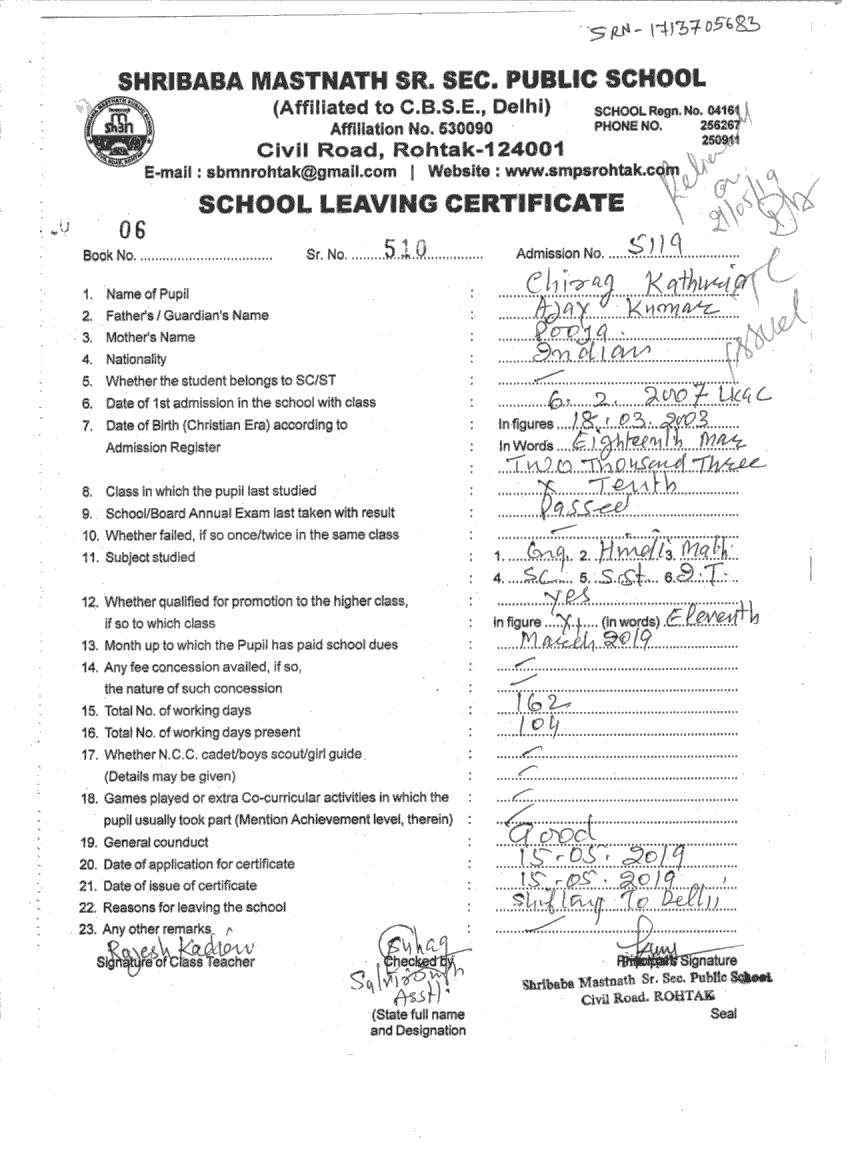 SRN-1713705683
SHRIBABA MASTNATH SR. SEC. PUBLIC SCHOOL
(Affiliated to C.B.S.E., Delhi)
Affiliation No. 530090
SCHOOL Regn. No. 04161
PHONE NO. 256267
250911
Civil Road, Rohtak-124001
E-mail : sbmnrohtak@gmail.com | Website : www.smpsrohtak.com
SCHOOL LEAVING CERTIFICATE
21/05/19
Book No. 06 Sr. No. 510 Admission No. 5119
1. Name of Pupil : Chirag Kathuria
2. Father's / Guardian's Name : Ajay Kumar
3. Mother's Name : Pooja
4. Nationality : Indian
issued
5. Whether the student belongs to SC/ST :
6. Date of 1st admission in the school with class : 6. 2. 2007 LKGC
7. Date of Birth (Christian Era) according to : In figures 18.03.2003
Admission Register In Words Eighteenth Mar
: Two Thousand Three
8. Class in which the pupil last studied : X Tenth
9. School/Board Annual Exam last taken with result : Passed
10. Whether failed, if so once/twice in the same class :
11. Subject studied : 1. Eng. 2. Hindi 3. Math
: 4. SC. 5. S.St 6. I.T.
12. Whether qualified for promotion to the higher class, : Yes
if so to which class in figure XI (in words) Eleventh
13. Month up to which the Pupil has paid school dues : March 2019
14. Any fee concession availed, if so, :
the nature of such concession :
15. Total No. of working days : 162
16. Total No. of working days present : 104
17. Whether N.C.C. cadet/boys scout/girl guide :
(Details may be given) :
18. Games played or extra Co-curricular activities in which the :
pupil usually took part (Mention Achievement level, therein) :
19. General counduct : Good
20. Date of application for certificate : 15-05.2019
21. Date of issue of certificate : 15-05.2019
22. Reasons for leaving the school : Shifting To Delhi
23. Any other remarks :
Rajesh
Signature of Class Teacher
Suhag
Checked by
Asstt.
(State full name
and Designation
Principal's Signature
Shribaba Mastnath Sr. Sec. Public School
Civil Road. ROHTAK
Seal